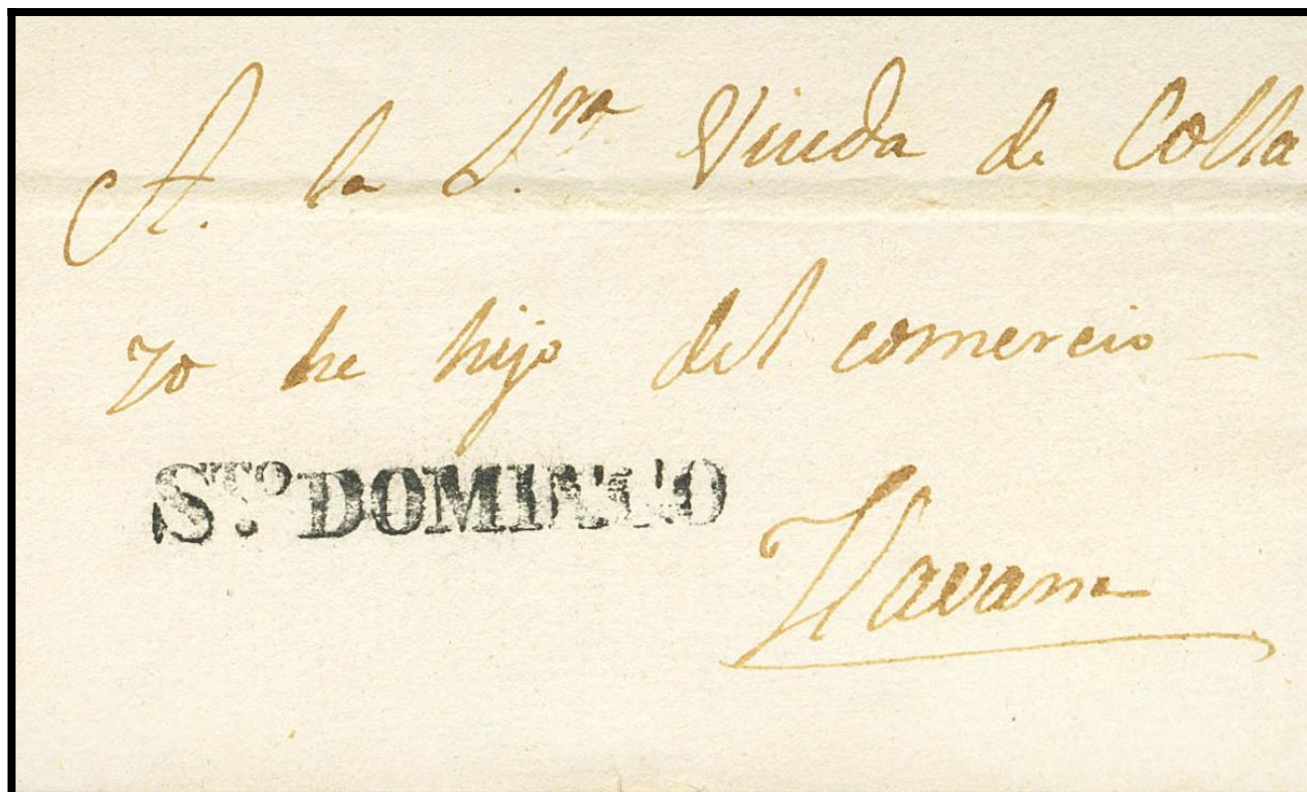 A. la S.ra Viuda de Colla
zo he hijo del comercio —
STO DOMINGO
Havana